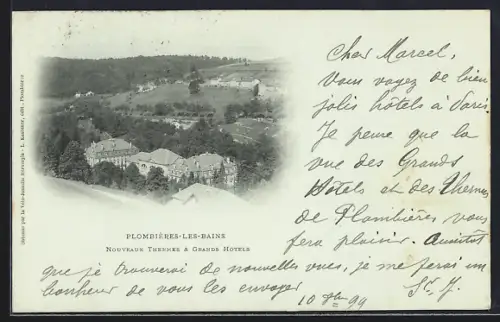 Cher Marcel,
Vous voyez de bien
jolis hôtels à Paris
Je pense que la
vue des Grands
Hôtels et des Thermes
de Plombières vous
fera plaisir. Aussitôt
que je trouverai de nouvelles vues, je me ferai un
bonheur de vous les envoyer
10 9bre 99
PLOMBIÈRES-LES-BAINS
NOUVEAUX THERMES & GRANDS HOTELS